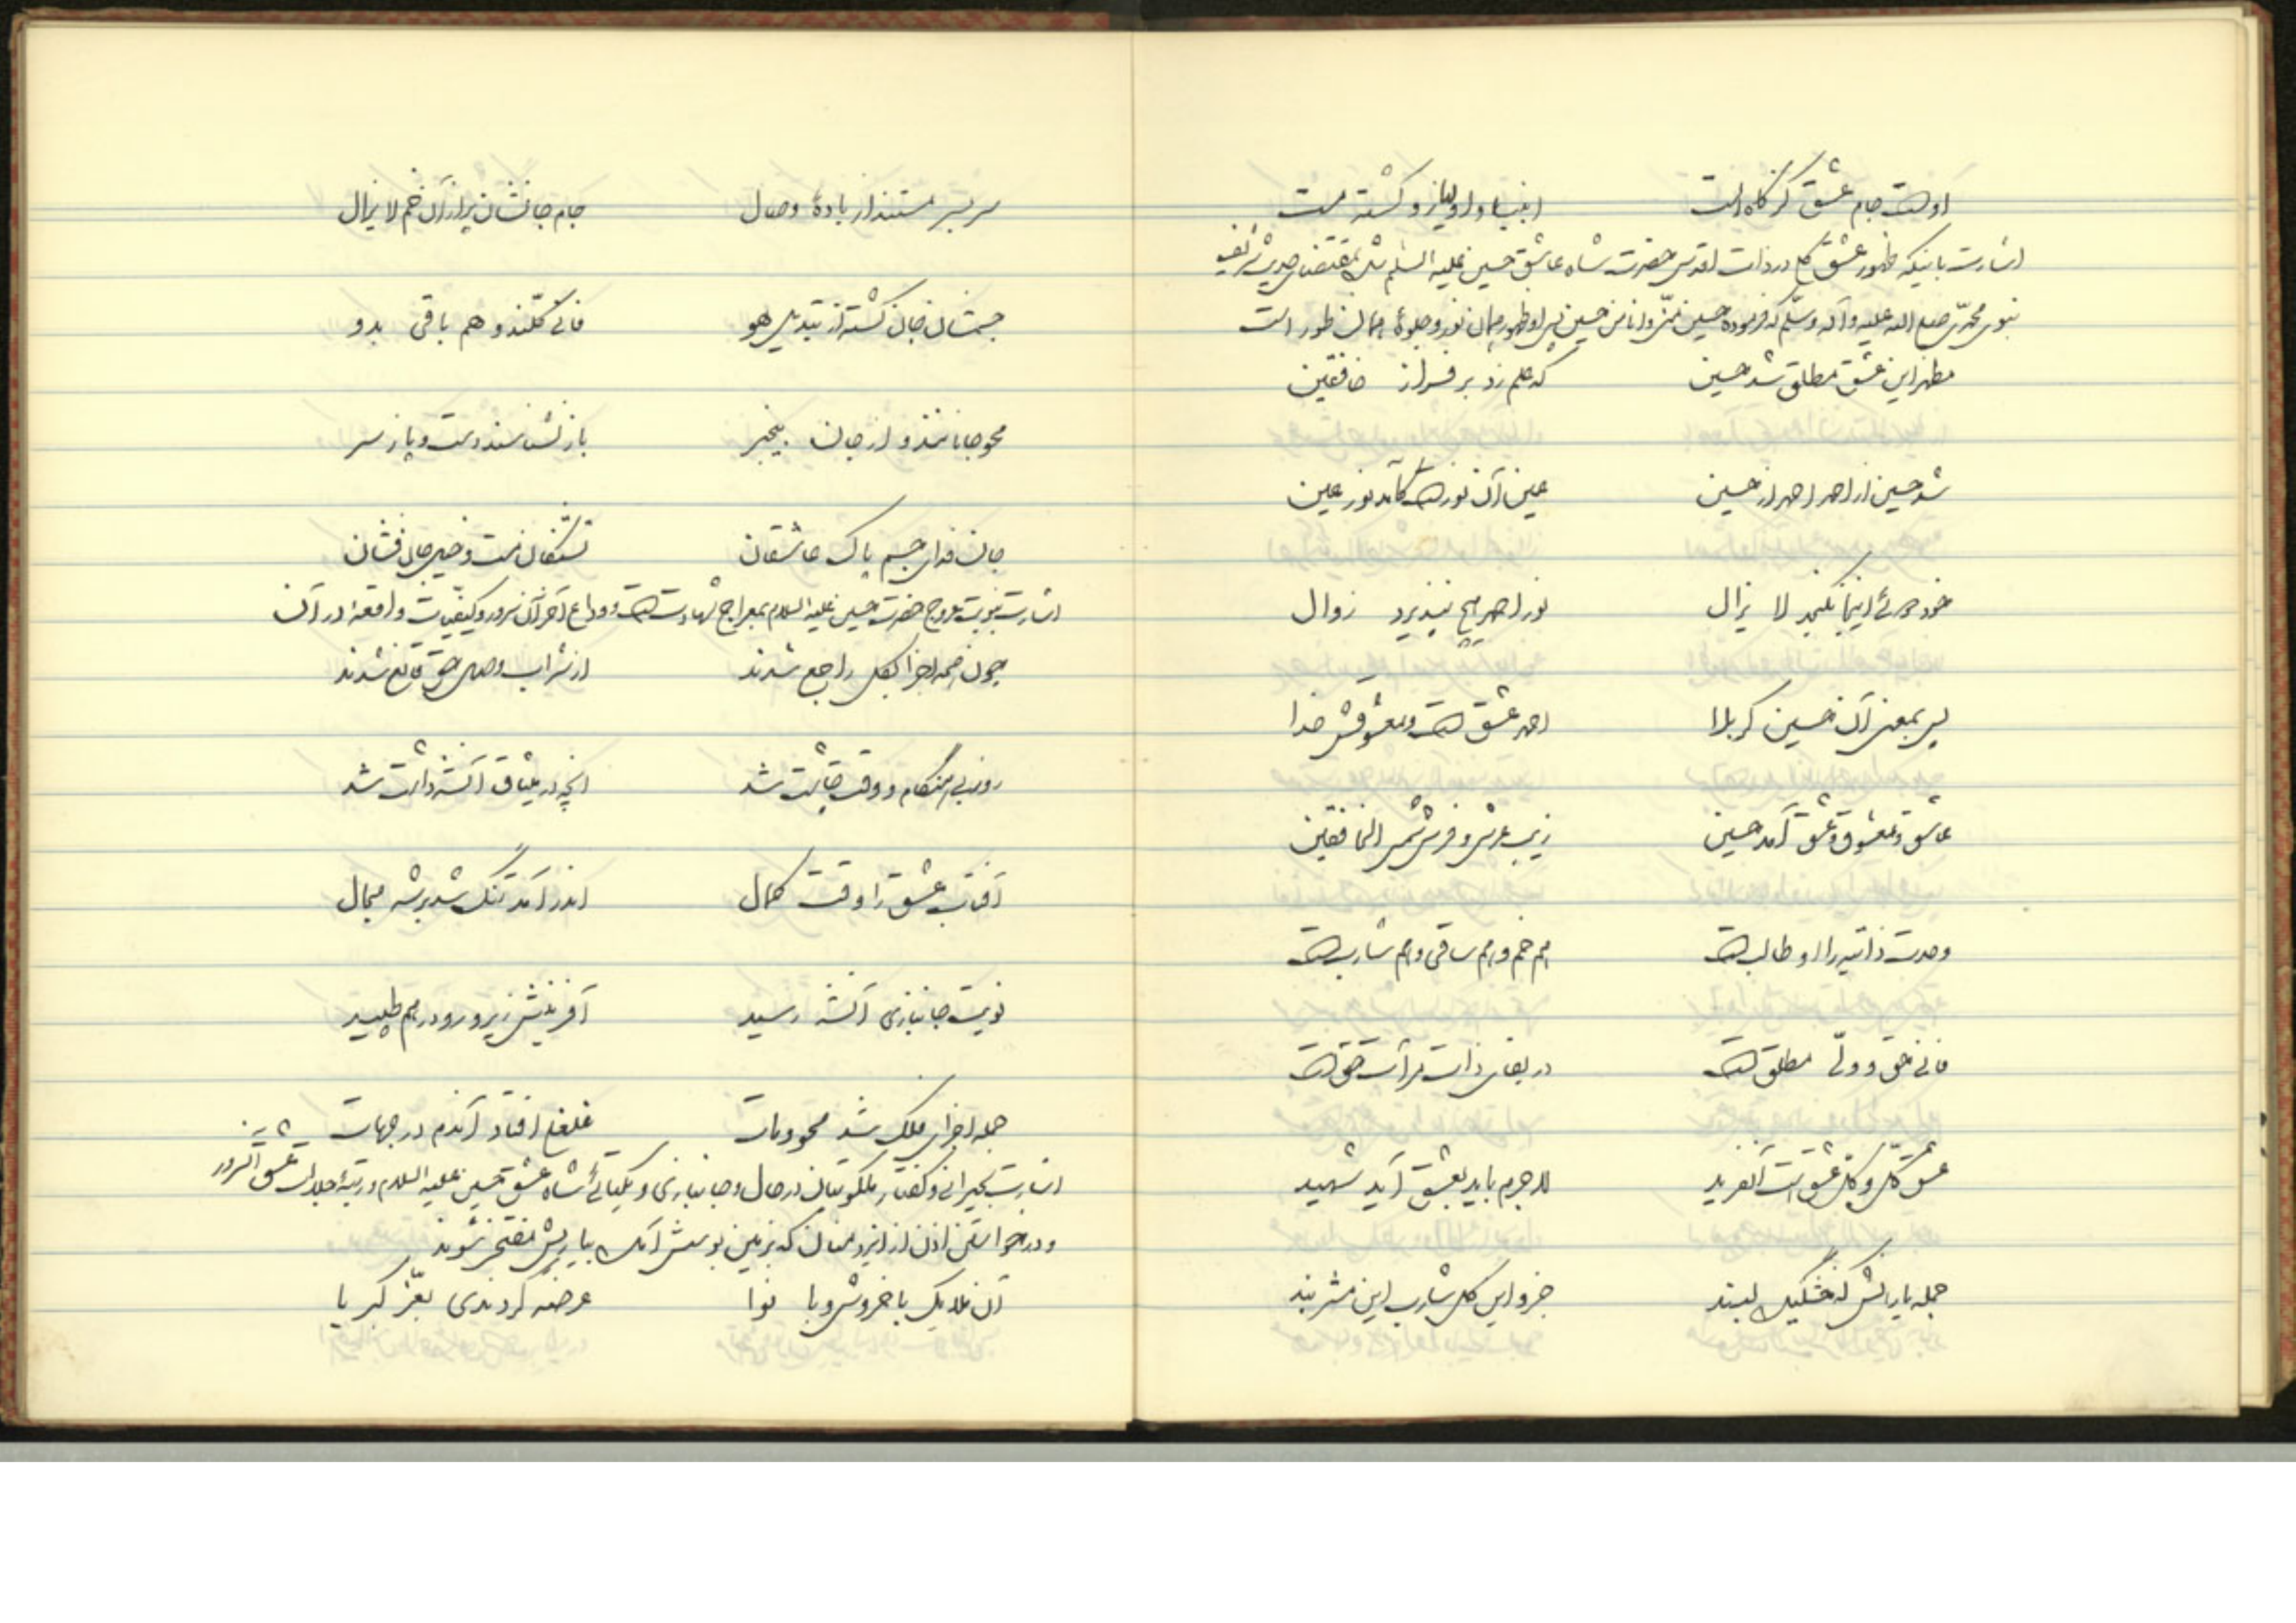 اوست جام عشق کز گاه الست انبیا و اولیا زو گشته مست
اشارت باینکه ظهور عشق کل در ذات اقدس حضرت شاه عاشق حسین علیه السلم شد بمقتضای حدیث شریف
نبوی محمدی صلی الله علیه و آله وسلم که فرموده حسین منی و انا من حسین پس او ظهور همان نور و جلوهٔ همان طور است
مظهر این عشق مطلق شد حسین که علم زد بر فراز خافقین
شد حسین از احمد احمد از حسین عین آن نور است کآمد نور عین
خود لا یزال نور احمد هیچ نپذیرد زوال
پس بمعنی آن حسین کربلا احمد عشق است و معشوقش خدا
عاشق و معشوق و عشق آمد حسین زیب عرش و فرش شمس الخافقین
وحدت ذاتیه را او طالب است هم خم و هم ساقی و هم شارب است
فانی حق و ولی مطلق است در بقای ذات مرآت حق است
عشق کل و کل عشقست آنفرید لاجرم باید بعشق آید شهید
جمله یارانش که خشکیده لبند جزو این کل شارب این مشربند
سربسر مستند از بادهٔ وصال جام جانشان پر از آن خم لا یزال
جسمشان جان گشته از تبدیل هو فانی کلند و هم باقی بدو
محو جانانند و از جان بیخبر باز نشناسند دست و پا ز سر
جان فدای جسم پاک عاشقان تشنگان مست و خیل جانفشان
اشارت بنوبت عروج حضرت حسین علیه السلام بمعراج شهادتست و وداع آخر آن سرور و کیفیات واقعه در آن
چون همه اجزا بکل راجع شدند از شراب وصل حق قانع شدند
روز بی هنگام و وقت چاشت شد آنچه در میثاق آنشه داشت شد
آفتاب عشق را وقت کمال اندر آمد تنگ شد بر شه مجال
نوبت جانبازی آنشه رسید آفرینش زیر و رو در هم طپید
جمله اجزای فلک شد محو و مات غلغل افتاد آندم در جهات
اشارت بحیرانی و گفتار ملکوتیان در حال و جانبازی و یکتائی شاه عشق حسین علیه السلام و رتبهٔ جلالت عشق آنسرور
و درخواستن اذن از ایزد منان که بزمین بوسش آمده بیاریش مفتخر شوند
آن ملایک با خروش و با نوا عرضه کردندی بعز کبریا